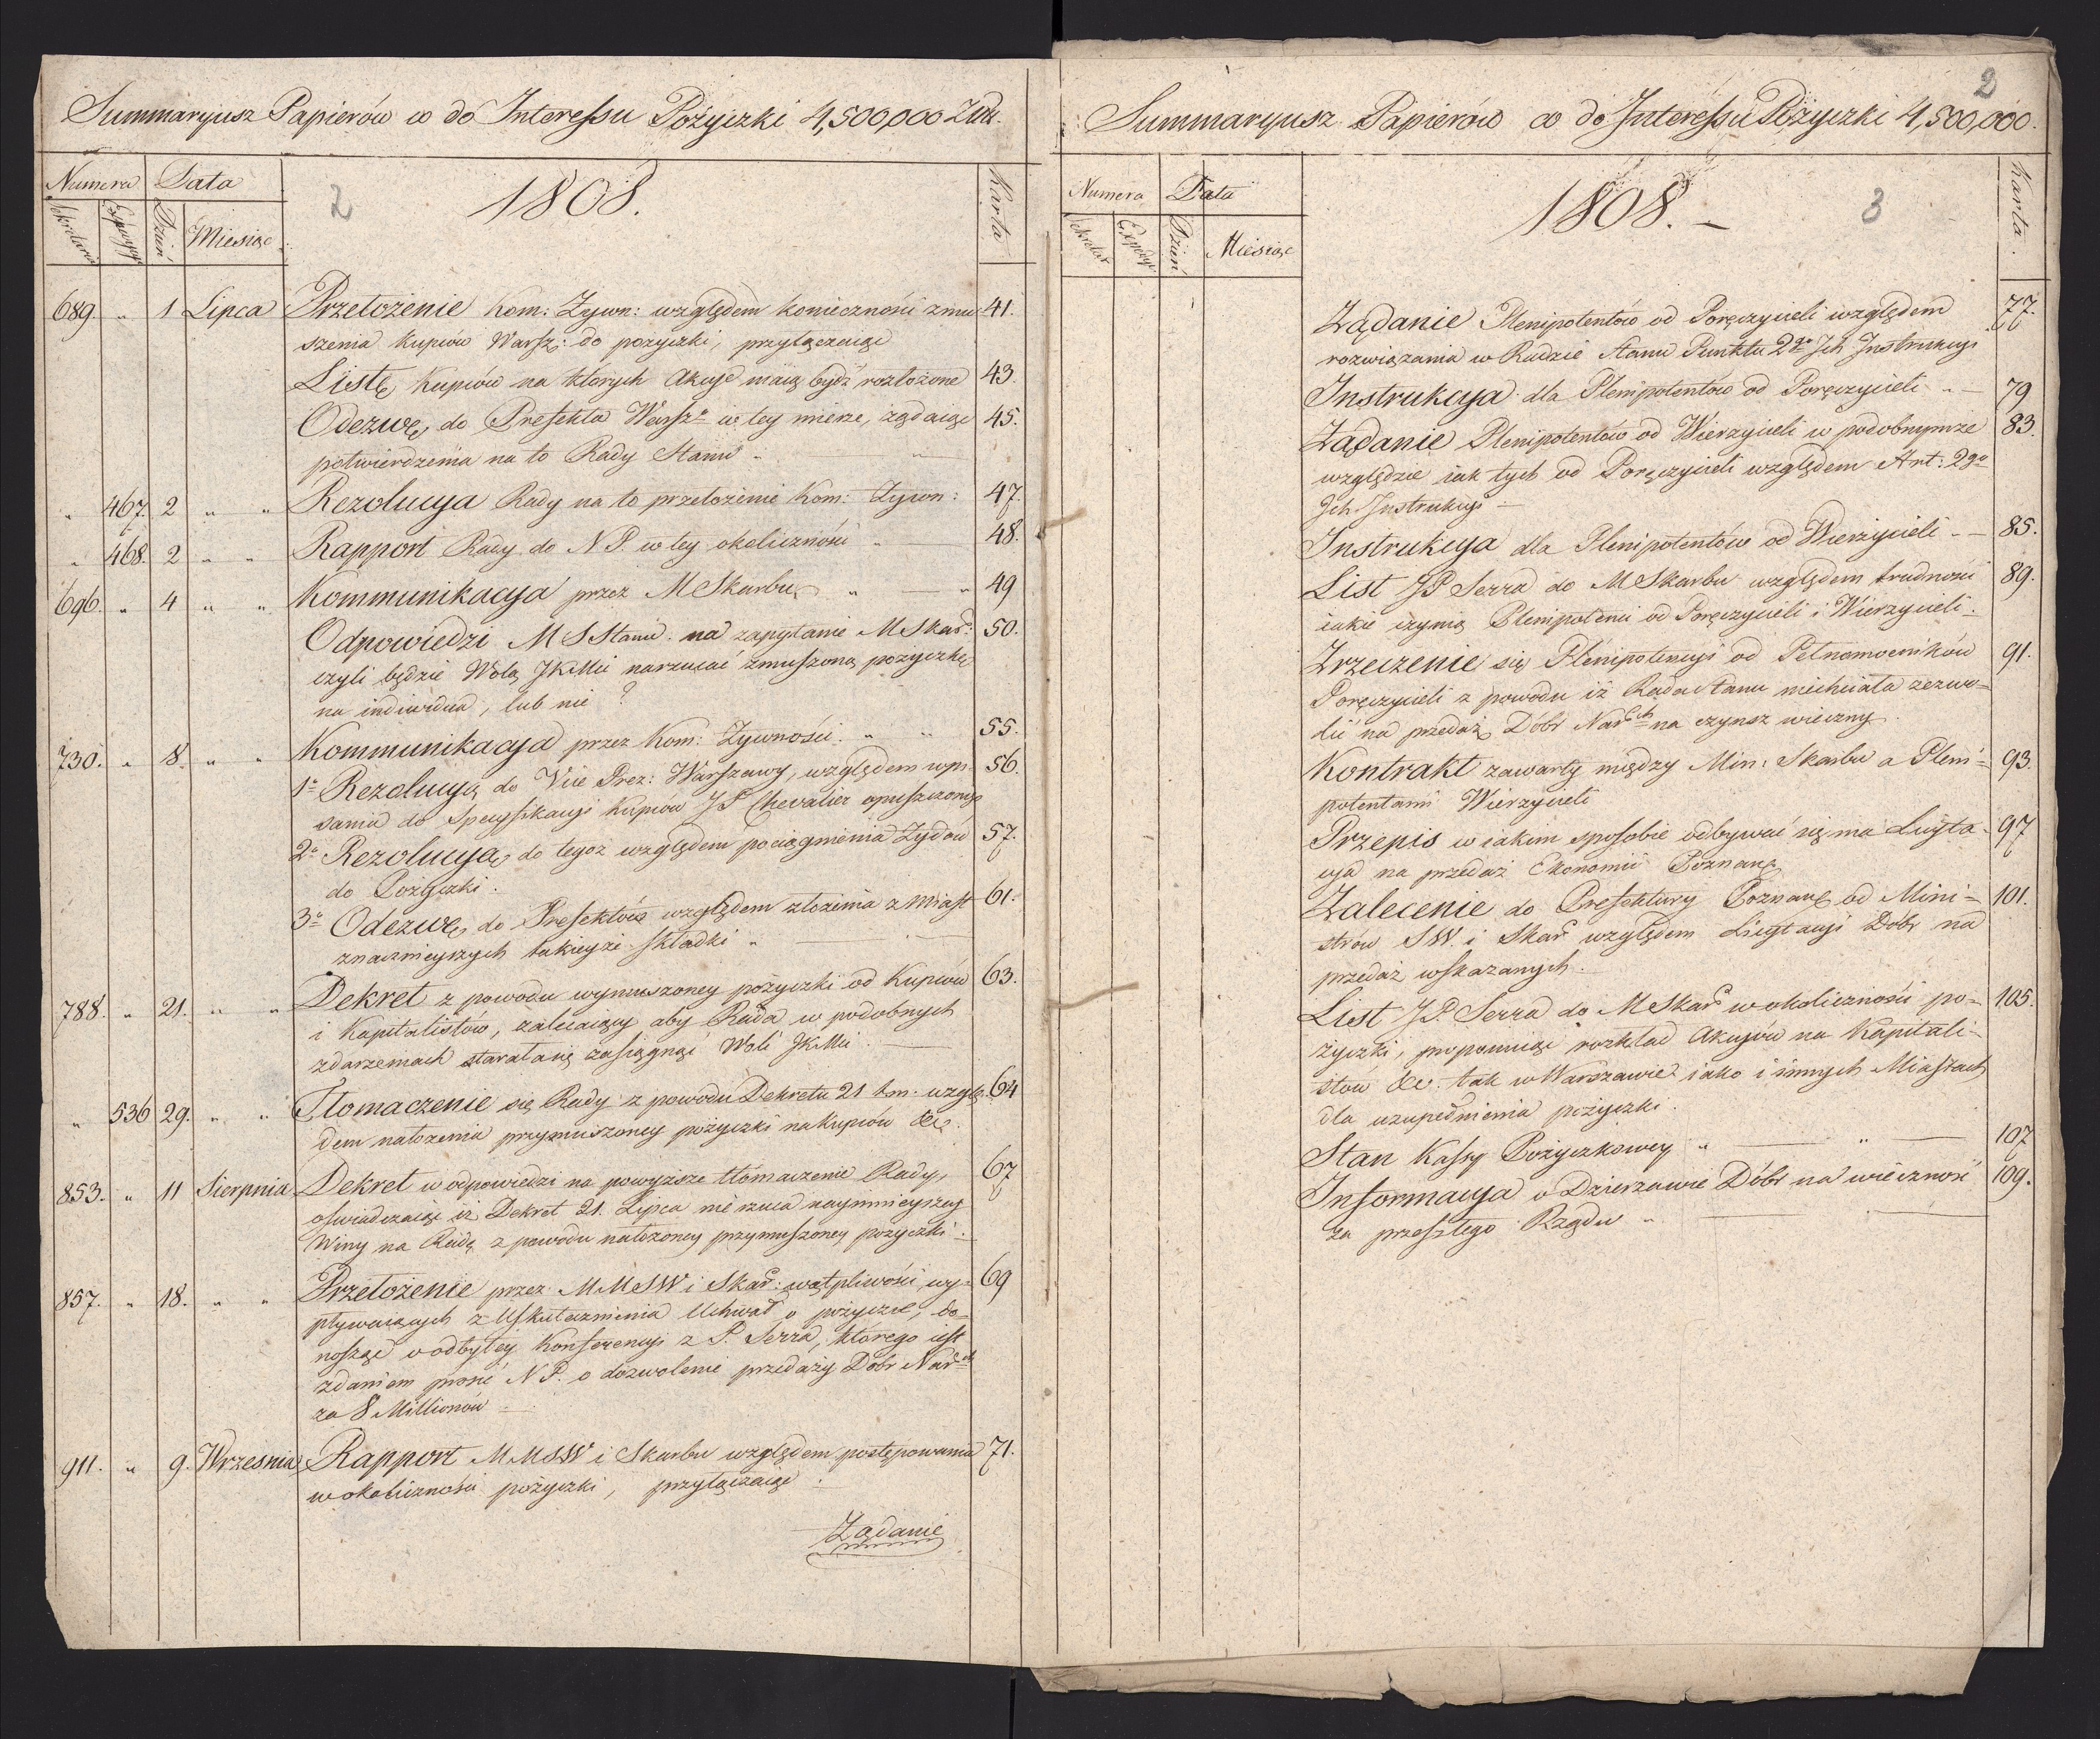 Summaryusz Papierów co do Interessu Pożyczki 4,500,000 Złtt.
Numera Data 2 1808. Karta
Sekretarza Expedycyi Dzień Miesiąc
689. " 1 Lipca Przełożenie Kom: Żywn: względem konieczności zmu- 41.
szenia Kupców Warsz: do pożyczki, przyłączając
Listę Kupców na których Akcye maią bydź rozłożone 43.
Odezwę do Prefekta Warsz: w tey mierze, żądaiąc 45.
potwierdzenia na to Rady Stanu "
" 467. 2 " " Rezolucya Rady na to przełożenie Kom: Żywn: 47.
" 468. 2 " " Rapport Rady do N P. w tey okoliczności 48.
696. " 4 " " Kommunikacya przez M Skarbu " " 49
Odpowiedzi M S Stanu na zapytanie M Skar: 50.
czyli będzie Wolą JKMci narzucać zmuszoną pożyczkę
na indiwidua, lub nie?
730. " 8. " " Kommunikacya przez Kom: Żywności. " " 55.
1o Rezolucyą do Vice Prez: Warszawy, względem wpi- 56.
sania do Specyfikacyi Kupców J P. Chevalier opuszczonego
2o Rezolucyą do tegoż względem pociągnienia Żydów 57.
do Pożyczki.
3o Odezwę do Prefektów względem złożenia z Miast 61.
znacznieyszych takieyże Składki "
788. " 21. " " Dekret z powodu wymuszoney pożyczki od Kupców 63.
i Kapitalistów, zalecaiący aby Rada w podobnych
zdarzeniach starała się zasięgnąć Woli JKMci.
" 536 29. " " Tłomaczenie się Rady z powodu Dekretu 21 t.m. wzglę- 64
dem nałożenia przymuszoney pożyczki na Kupców &c.
853. " 11 Sierpnia Dekret w odpowiedzi na powyższe tłómaczenie Rady, 67
oświadczaiąc iż Dekret 21. Lipca nie rzuca naymnieyszey
Winy na Radę z powodu nałożoney przymuszoney pożyczki.
857. " 18. " " Przełożenie przez M M S W i Skar: wątpliwości, wy- 69
pływaiących z Uskutecznienia Uchwał o pożyczce, do-
nosząc o odbytey Konferencyi z P. Serra, którego iest
zdaniem prosić N P. o dozwolenie przedaży Dóbr Narch
za 8 Millionów
911. " 9. Września Rapport M M S W i Skarbu względem postępowania 71.
w okoliczności pożyczki, przyłączaiąc
Żądanie
2
Summaryusz Papierów co do Interessu Pożyczki 4,500,000.
Numera Data 1808. 3 Karta.
Sekretar Expedyc Dzień Miesiąc
Żądanie Plenipotentów od Poręczycieli względem 77.
rozwiązania w Radzie Stanu Punktu 2go Ich Instrukcyi
Instrukcya dla Plenipotentów od Poręczycieli " 79
Żądanie Plenipotentów od Wierzycieli w podobnymże 83.
względzie iak tych od Poręczycieli względem Art: 2go
Ich Instrukcyi
Instrukcya dla Plenipotentów od Wierzycieli 85.
List JP Serra do M Skarbu względem trudności 89.
iakie czynią Plenipotenci od Poręczycieli i Wierzycieli.
Zrzeczenie się Plenipotencyi od Pełnomocników 91.
Poręczycieli z powodu iż Rada Stanu niechciała zezwo-
lić na przedaż Dóbr Narch na czynsz wieczny.
Kontrakt zawarty między Min: Skarbu a Pleni- 93.
potentami Wierzycieli
Przepis w iakim sposobie odbywać się ma Licyta- 97
cya na przedaż Ekonomii Poznań:
Zalecenie do Prefektury Poznań: od Mini- 101.
strów S W. i Skar względem Licytacyi Dóbr na
przedaż wskazanych.
List JP. Serra do M Skar w okoliczności po- 105.
życzki, proponuiąc rozkład Akcyów na Kapitali-
stów &c. tak w Warszawie iako i innych Miastach
dla uzupełnienia pożyczki.
Stan Kassy Pożyczkowey " " 107
Informacya o Dzierżawie Dóbr na wieczność 109.
za przeszłego Rządu "